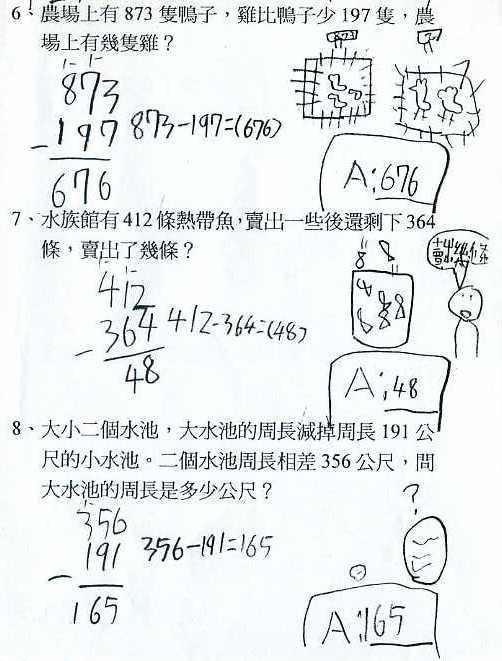 6、農場上有 873 隻鴨子，雞比鴨子少 197 隻，農
場上有幾隻雞？
873
- 197
676
873-197=(676)
A:676
7、水族館有 412 條熱帶魚，賣出一些後還剩下 364
條，賣出了幾條？
412
- 364
48
412-364=(48)
A:48
8、大小二個水池，大水池的周長減掉周長 191 公
尺的小水池。二個水池周長相差 356 公尺，問
大水池的周長是多少公尺？
356
- 191
165
356-191=165
?
A:165